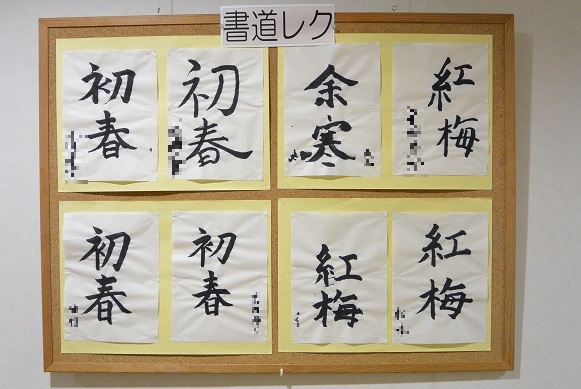 書道レク
初春
初春
余寒
紅梅
初春
初春
紅梅
紅梅